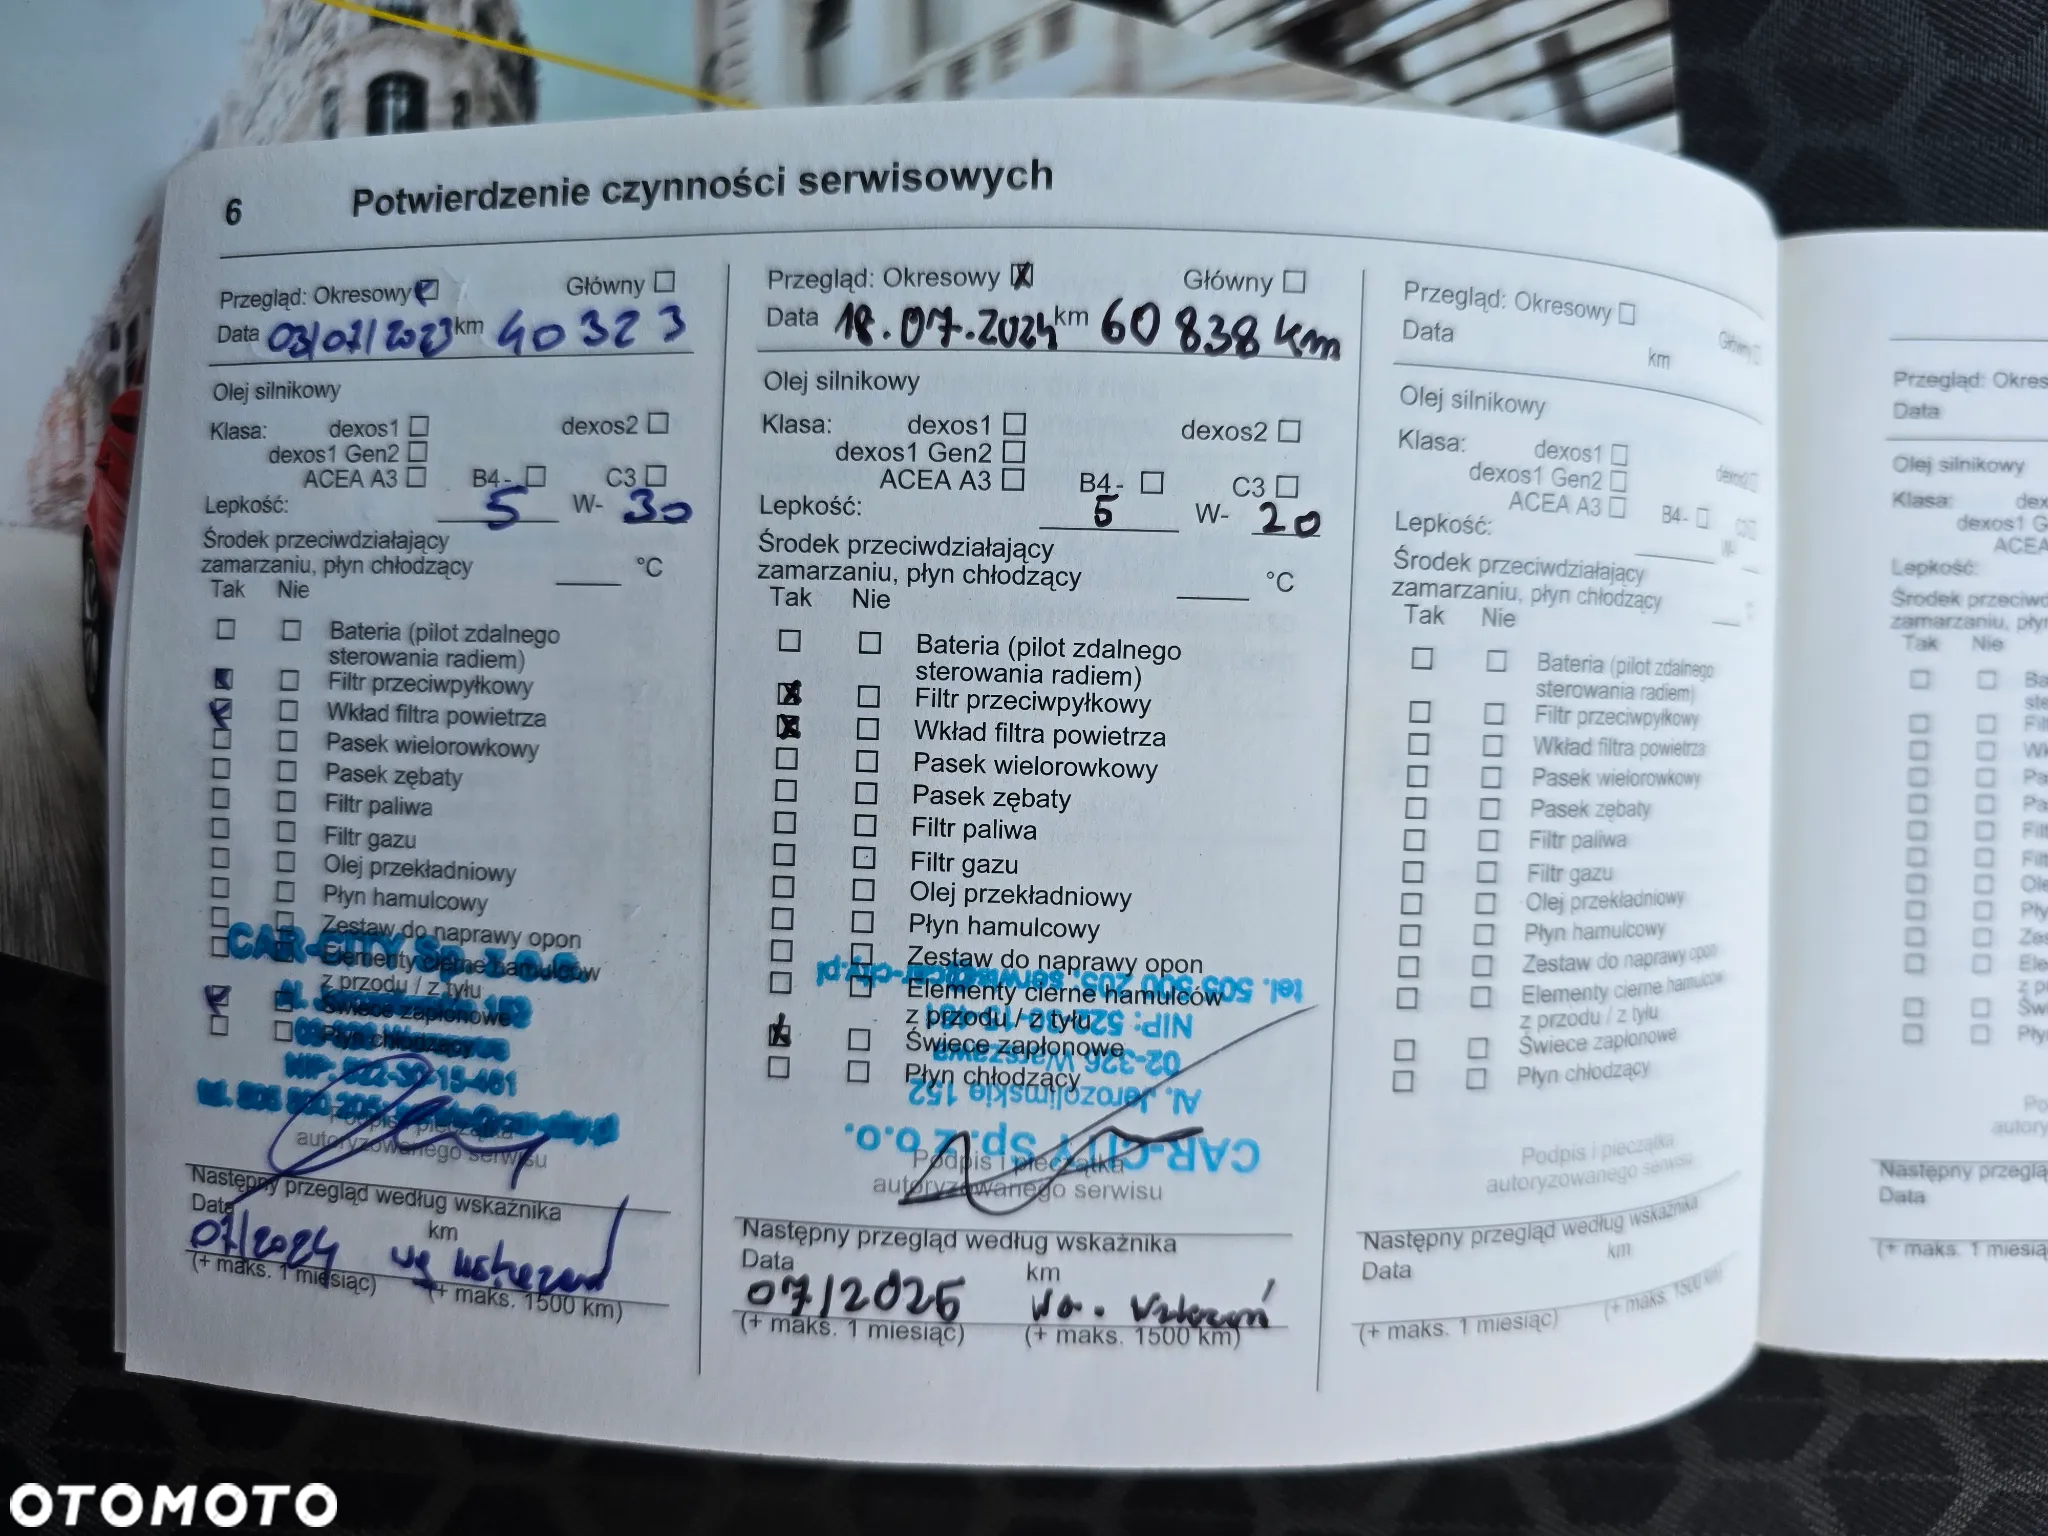 6 Potwierdzenie czynności serwisowych
Przegląd: Okresowy Główny
Data 03/07/2023 km 40323
Olej silnikowy
Klasa: dexos1 dexos2
dexos1 Gen2
ACEA A3 B4- C3
Lepkość: 5 W- 30
Środek przeciwdziałający
zamarzaniu, płyn chłodzący °C
Tak Nie
Bateria (pilot zdalnego
sterowania radiem)
Filtr przeciwpyłkowy
Wkład filtra powietrza
Pasek wielorowkowy
Pasek zębaty
Filtr paliwa
Filtr gazu
Olej przekładniowy
Płyn hamulcowy
Zestaw do naprawy opon
Elementy cierne hamulców
z przodu / z tyłu
Świece zapłonowe
Płyn chłodzący
CAR-CITY Sp. z o.o.
NIP: 522-30-15-461
Podpis i pieczątka
autoryzowanego serwisu
Następny przegląd według wskaźnika
Data km
07/2024 wg wskazań
(+ maks. 1 miesiąc) (+ maks. 1500 km)
Przegląd: Okresowy X Główny
Data 18.07.2024 km 60 838 km
Olej silnikowy
Klasa: dexos1 dexos2
dexos1 Gen2
ACEA A3 B4- C3
Lepkość: 5 W- 20
Środek przeciwdziałający
zamarzaniu, płyn chłodzący °C
Tak Nie
Bateria (pilot zdalnego
sterowania radiem)
Filtr przeciwpyłkowy
Wkład filtra powietrza
Pasek wielorowkowy
Pasek zębaty
Filtr paliwa
Filtr gazu
Olej przekładniowy
Płyn hamulcowy
Zestaw do naprawy opon
Elementy cierne hamulców
z przodu / z tyłu
Świece zapłonowe
Płyn chłodzący
CAR-CITY Sp. z o.o.
Al. Jerozolimskie 152
02-326 Warszawa
NIP: 522-30-15-461
tel. 505 500 205; serwis@car-city.pl
Podpis i pieczątka
autoryzowanego serwisu
Następny przegląd według wskaźnika
Data km
07/2025
(+ maks. 1 miesiąc) (+ maks. 1500 km)
Przegląd: Okresowy Główny
Data km
Olej silnikowy
Klasa: dexos1 dexos2
dexos1 Gen2
ACEA A3 B4- C3
Lepkość: W-
Środek przeciwdziałający
zamarzaniu, płyn chłodzący °
Tak Nie
Bateria (pilot zdalnego
sterowania radiem)
Filtr przeciwpyłkowy
Wkład filtra powietrza
Pasek wielorowkowy
Pasek zębaty
Filtr paliwa
Filtr gazu
Olej przekładniowy
Płyn hamulcowy
Zestaw do naprawy opon
Elementy cierne hamulców
z przodu / z tyłu
Świece zapłonowe
Płyn chłodzący
Podpis i pieczątka
autoryzowanego serwisu
Następny przegląd według wskaźnika
Data km
(+ maks. 1 miesiąc) (+ maks. 1500 km)
Przegląd: Okres
Data
Olej silnikowy
Klasa: dex
dexos1 G
ACEA
Lepkość:
Środek przeciwd
zamarzaniu, płyn
Tak Nie
Ba
ste
Filt
Wk
Pa
Pa
Filt
Filt
Ole
Pły
Zes
Ele
z p
Św
Pły
Po
autory
Następny przeglą
Data
(+ maks. 1 miesią
OTOMOTO